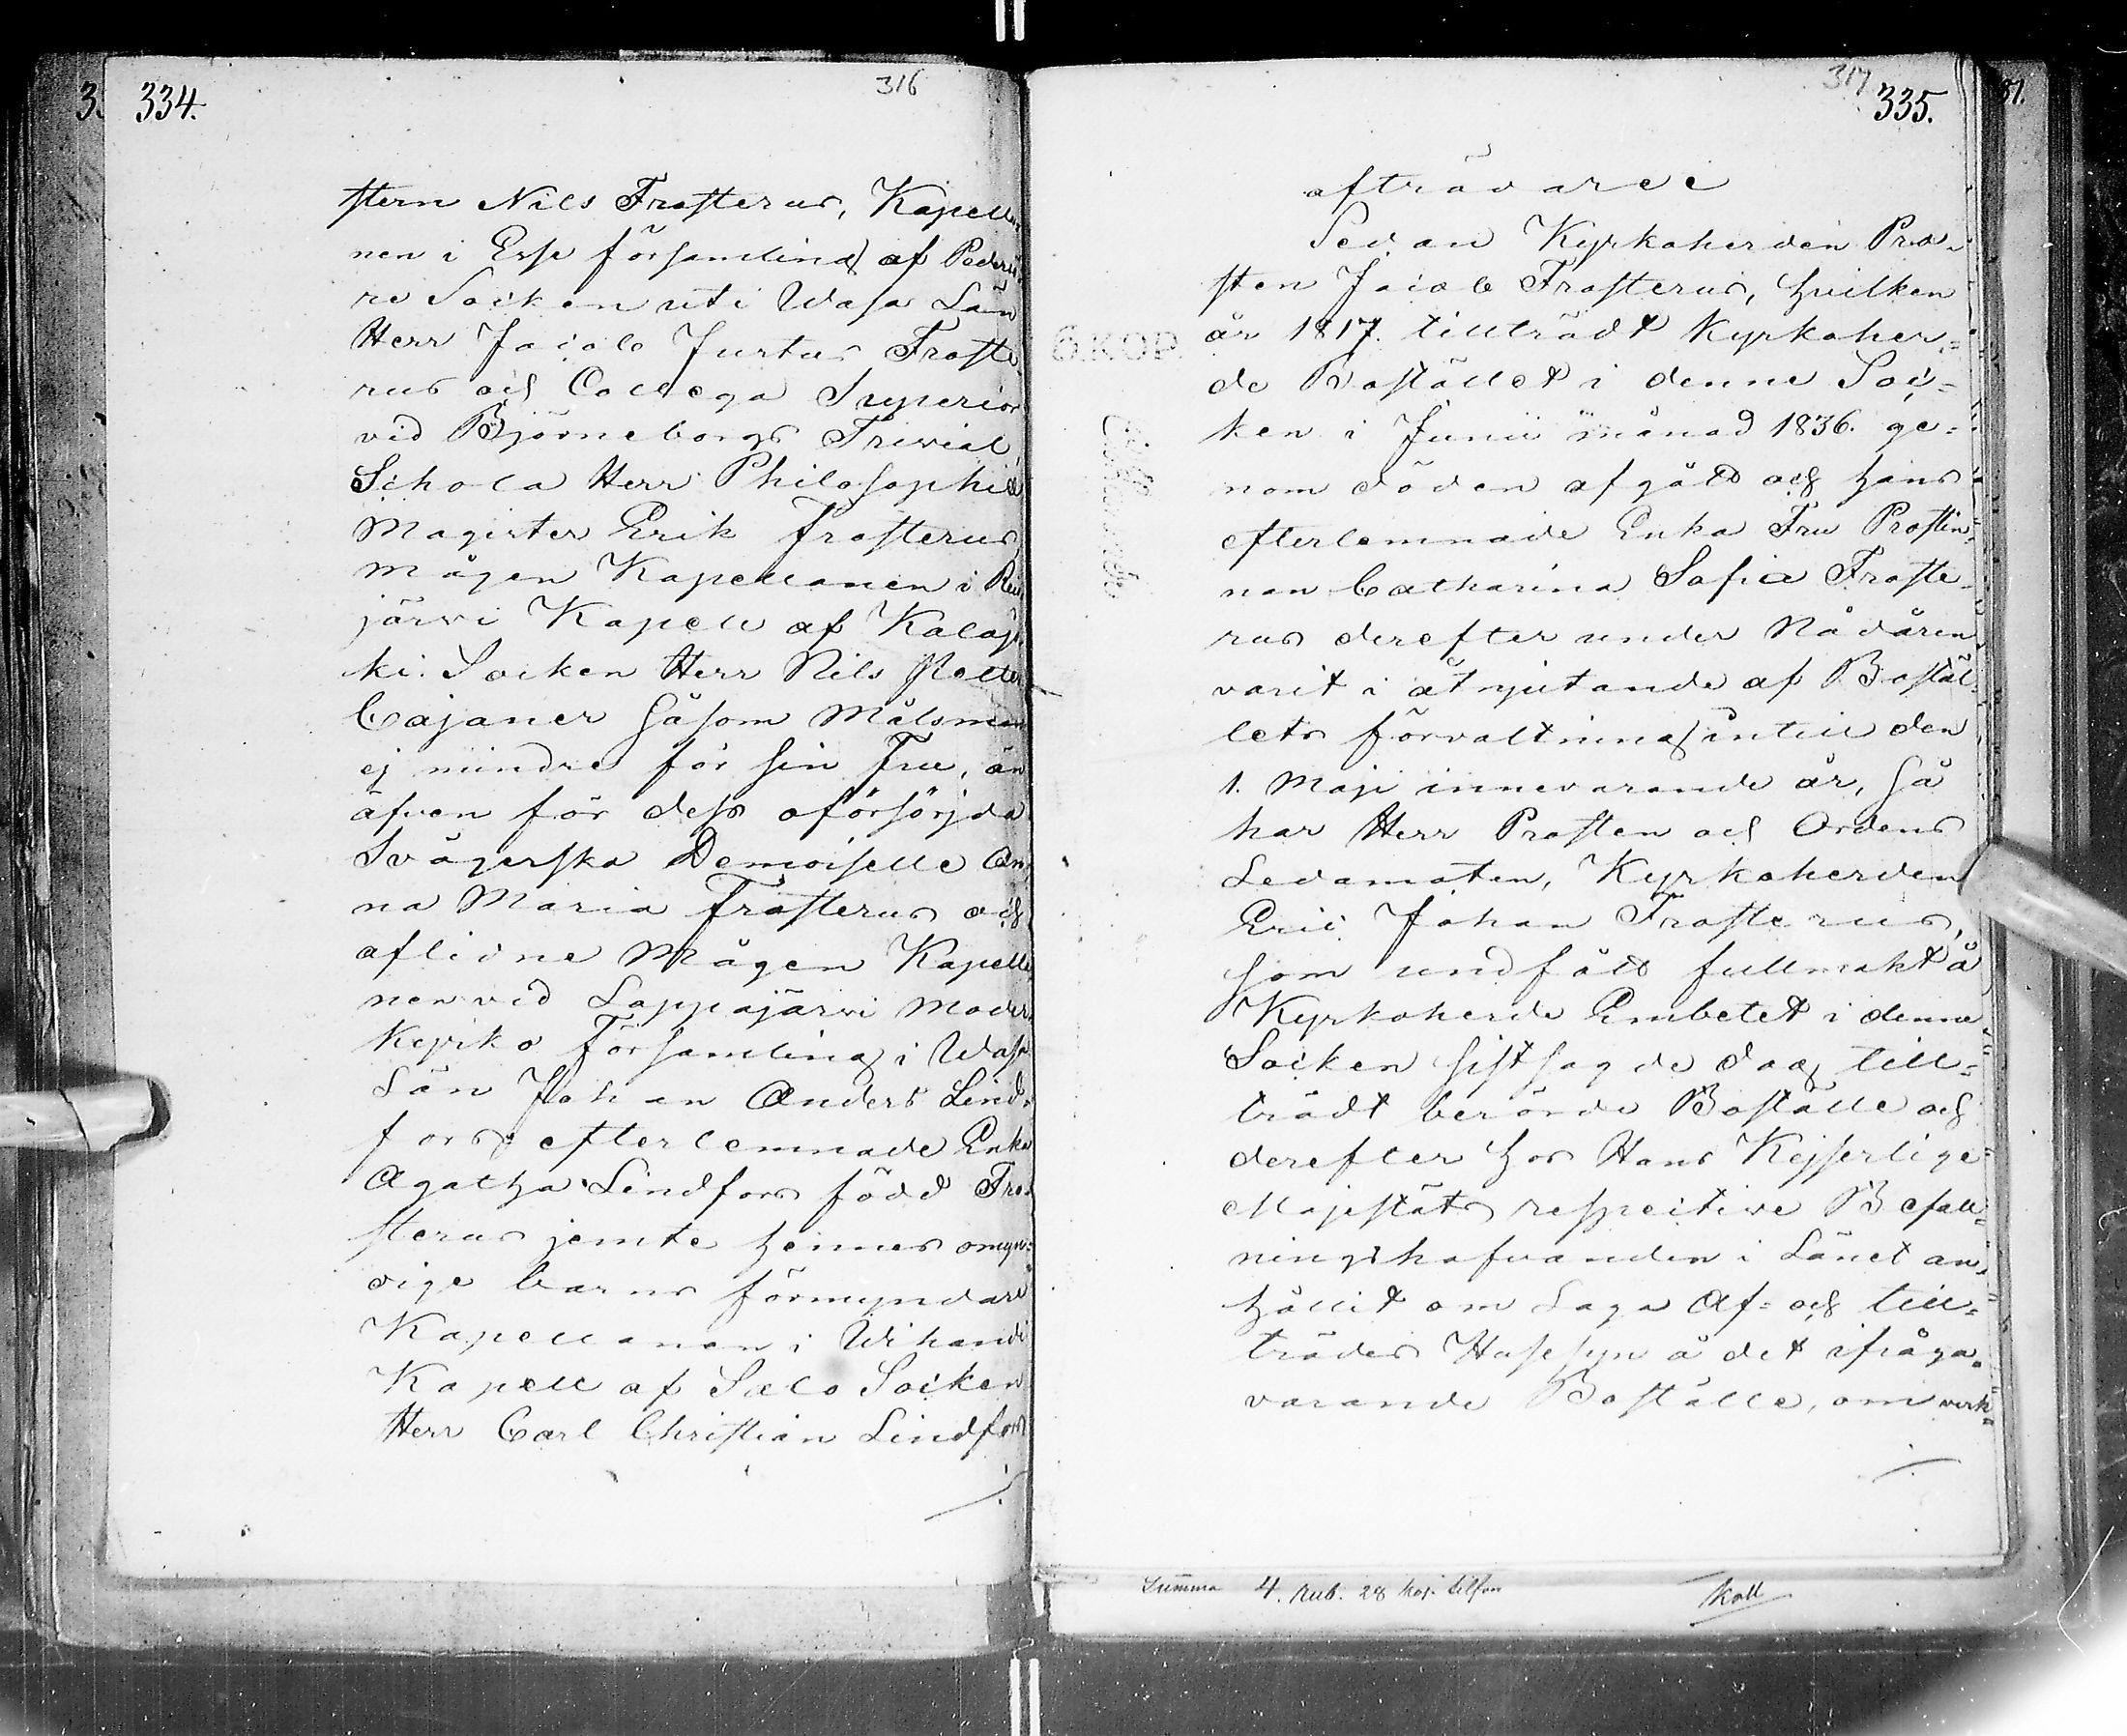 334.
316
stern Nils Frosterus, Kapella-
nen i Esse församling af Pedersö-
re Socken uti Wasa Län
Herr Jacob Justus Froste-
rus och Collega Superior
vid Björneborgs Trivial
Schola Herr Philosophiæ
Magister Erik Frosterus,
mågen Kapellanen i Reis-
järvi Kapell af Kalajo-
ki Socken Herr Nils
Cajaner såsom Målsman
ej mindre för sin Fru, än
äfven för dess oförsörjda
Svägerska Demoiselle An-
na Maria Frosterus och
aflidne Mågen Kapella-
nen vid Lappajärvi Moder-
kyrko Församling i Wasa
Län Johan Anders Lind-
fors efterlemnade Enka
Agatha Lindfors född Fro-
sterus jemte hennes omyn-
dige barns förmyndare
Kapellanen i Wihandi
Kapell af Salo Socken
Herr Carl Christian Lindfors
./.
317
335.
afträdare
Sedan Kyrkoherden Pro-
sten Jacob Frosterus, hvilken
år 1817. tillträdt Kyrkoher-
de Bostället i denne Soc-
ken i Junii månad 1836. ge-
nom döden afgått och hans
efterlemnade Enka Fru Prostin-
nan Catharina Sofia Froste-
rus derefter under Nådåren
varit i åtnjutande af Bostäl-
lets förvaltning intill den
1. Maji innevarande år, så
har Herr Prosten och Ordens
Ledamoten, Kyrkoherden
Eric Johan Frosterus,
som undfått fullmakt å
Kyrkoherde Embetet i denne
Socken sistsagde dag till-
trädt berörde Boställe och
derefter hos Hans Kejserlige
Majestäts respective Befall-
ningshafvanden i Länet an-
hållit om Laga Af- och till-
trädes Husesyn å det ifråga-
varande Boställe, om verk-
./.
6. KOP.
Summa 4. Rub. 28 kop. silfver